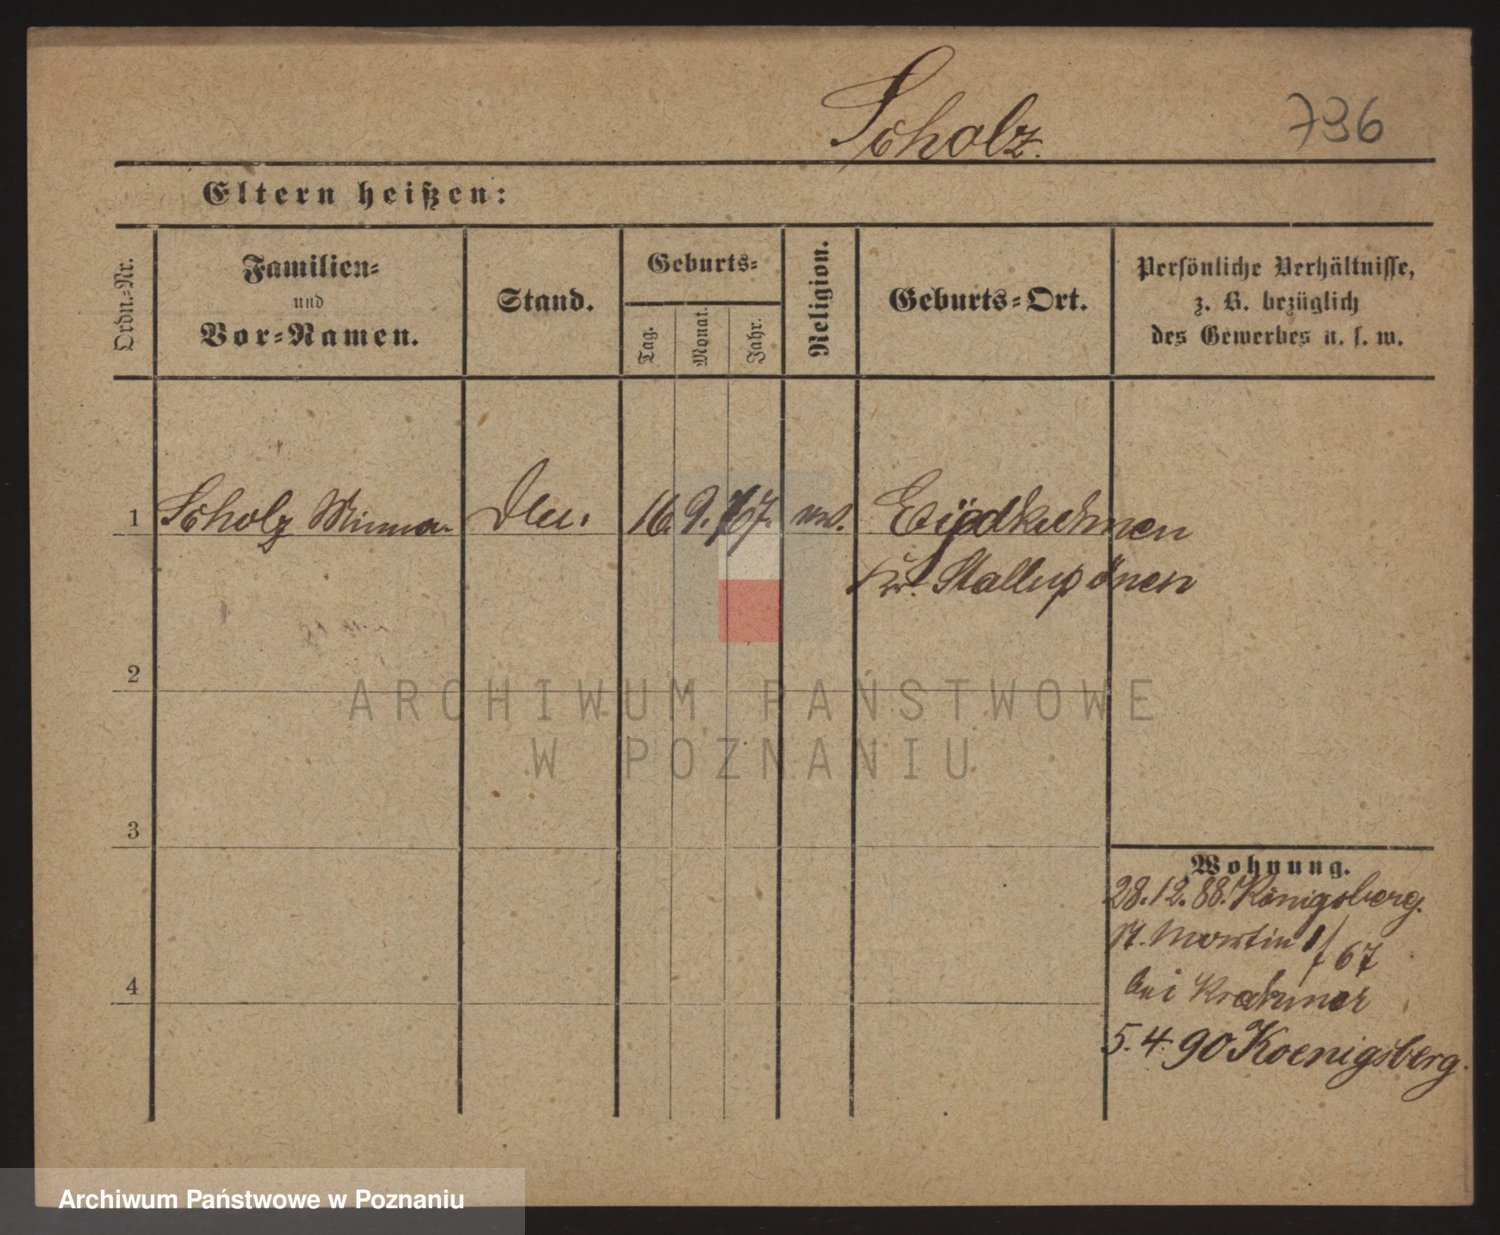 Scholz.
736
Eltern heißen:
Ordn.-Nr.
Familien-
und
Vor-Namen.
Stand.
Geburts-
Tag.
Monat.
Jahr.
Religion.
Geburts-Ort.
Persönliche Verhältnisse,
z. B. bezüglich
des Gewerbes u. s. w.
1 Scholz Minna 16. 9. 67. Eydtkuhnen
Kr. Stallupönen
2
3
4
Wohnung.
28.12.88. Königsberg.
St. Martin 67
bei
5.4.90 Koenigsberg.
ARCHIWUM PAŃSTWOWE
W POZNANIU
Archiwum Państwowe w Poznaniu